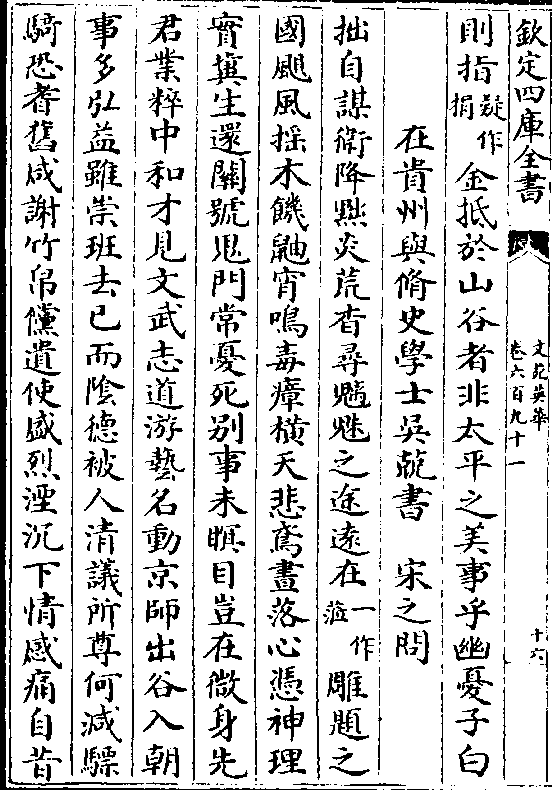 欽定四庫全書
文苑英華
卷六百九十一
十六
則指疑作捐金抵於山谷者非太平之美事乎幽憂子白
在貴州與脩史學士吳兢書　宋之問
拙自謀衛降黜炎荒杳尋魑魅之途遠在一作蒞雕題之
國颶風揺木饑鼬宵鳴毒瘴横天悲鳶晝落心憑神理
實冀生還關號鬼門常憂死别事未瞑目豈在微身先
君業粹中和才見文武志道游藝名動京師出谷入朝
事多弘益雖崇班去已而隂德被人清議所尊何減驃
騎恐耆舊咸謝竹帛儻遺使盛烈湮沉下情感痛自昔